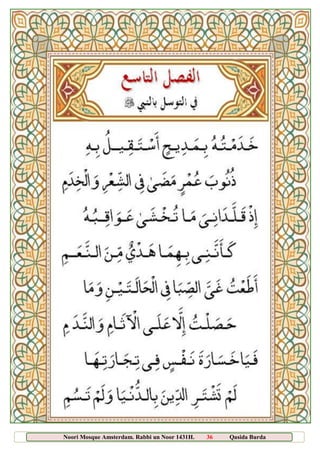 الفصل التاسع
في التوسل بالنبي ﷺ
خَدَمْتُهُ بِمَدِيحٍ أَسْتَقِيلُ بِهِ
ذُنُوبَ عُمْرٍ مَضَىٰ فِي الشِّعْرِ وَالْخِدَمِ
إِذْ قَلَّدَانِيَ مَا تُخْشَىٰ عَوَاقِبُهُ
كَأَنَّنِي بِهِمَا هَدْيٌ مِّنَ النَّعَمِ
أَطَعْتُ غَيَّ الصِّبَا فِي الْحَالَتَيْنِ وَمَا
حَصَلْتُ إِلَّا عَلَى الْآثَامِ وَالنَّدَمِ
فَيَا خَسَارَةَ نَفْسٍ فِي تِجَارَتِهَا
لَمْ تَشْتَرِ الدِّينَ بِالدُّنْيَا وَلَمْ تَسُمِ
Noori Mosque Amsterdam. Rabbi un Noor 1431H. 36 Qasida Burda